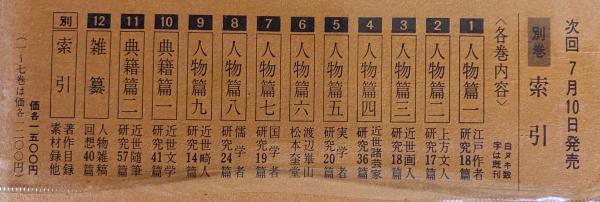 次回 7月10日発売
別巻 索引
〈各巻内容〉
白ヌキ数字は既刊
1 人物篇一 江戸作者 研究18篇
2 人物篇二 上方文人 研究17篇
3 人物篇三 近世画人 研究18篇
4 人物篇四 近世諸芸家 研究36篇
5 人物篇五 実学者 研究20篇
6 人物篇六 渡辺崋山 松本奎堂
7 人物篇七 国学者 研究19篇
8 人物篇八 儒学者 研究24篇
9 人物篇九 近世畸人 研究14篇
10 典籍篇一 近世文学 研究41篇
11 典籍篇二 近世随筆 研究57篇
12 雑纂 人物雑稿 回想40篇
別 索引 著作目録 素材録他
価各一五〇〇円
(一~七巻は価各一二〇〇円)